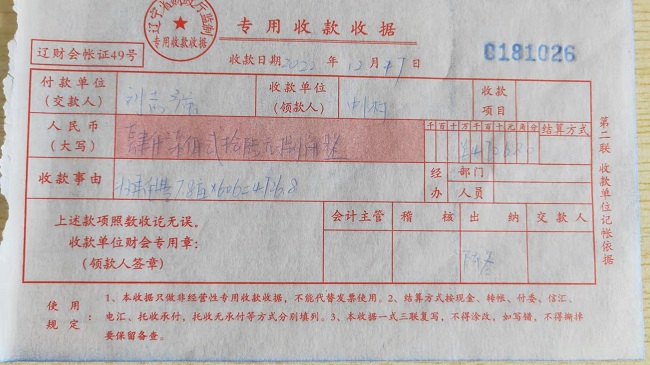 辽宁省财政厅监制
专用收款收据
专用收款收据
辽财会帐证49号
收款日期2022年12月4日
0181026
付款单位
(交款人)
收款单位
(领款人)
收款
项目
人民币
(大写)
千百十万千百十元角分
结算方式
收款事由
7.8 606=4726.8
经 部门
办 人员
上述款项照数收讫无误。
收款单位财会专用章:
(领款人签章)
会计主管 稽核 出纳 交款人
第二联 收款单位记帐依据
使用规定:
1、本收据只做非经营性专用收款收据,不能代替发票使用。2、结算方式按现金、转帐、付委、信汇、
电汇、托收承付、托收无承付等方式分别填列。3、本收据一式三联复写,不得涂改,如写错,不得撕掉
要保留备查。